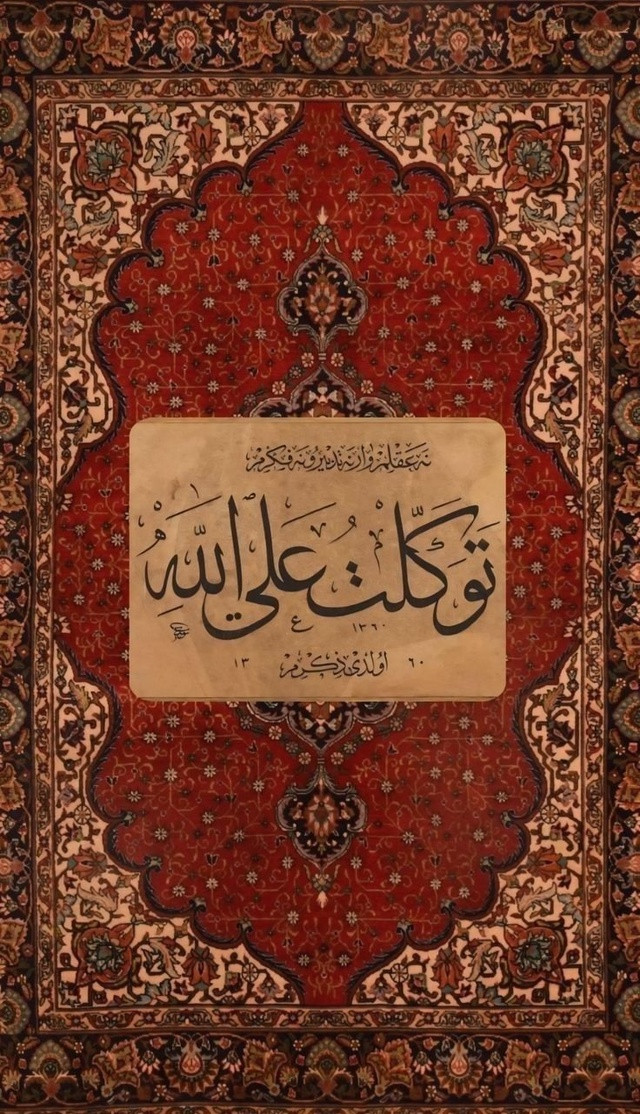 نه عقلم وار نه تدبیر و نه فکرم
توكّلت علی اللّٰه
١٣٦٠ ع
٦٠ اولدی ذكرم ١٣